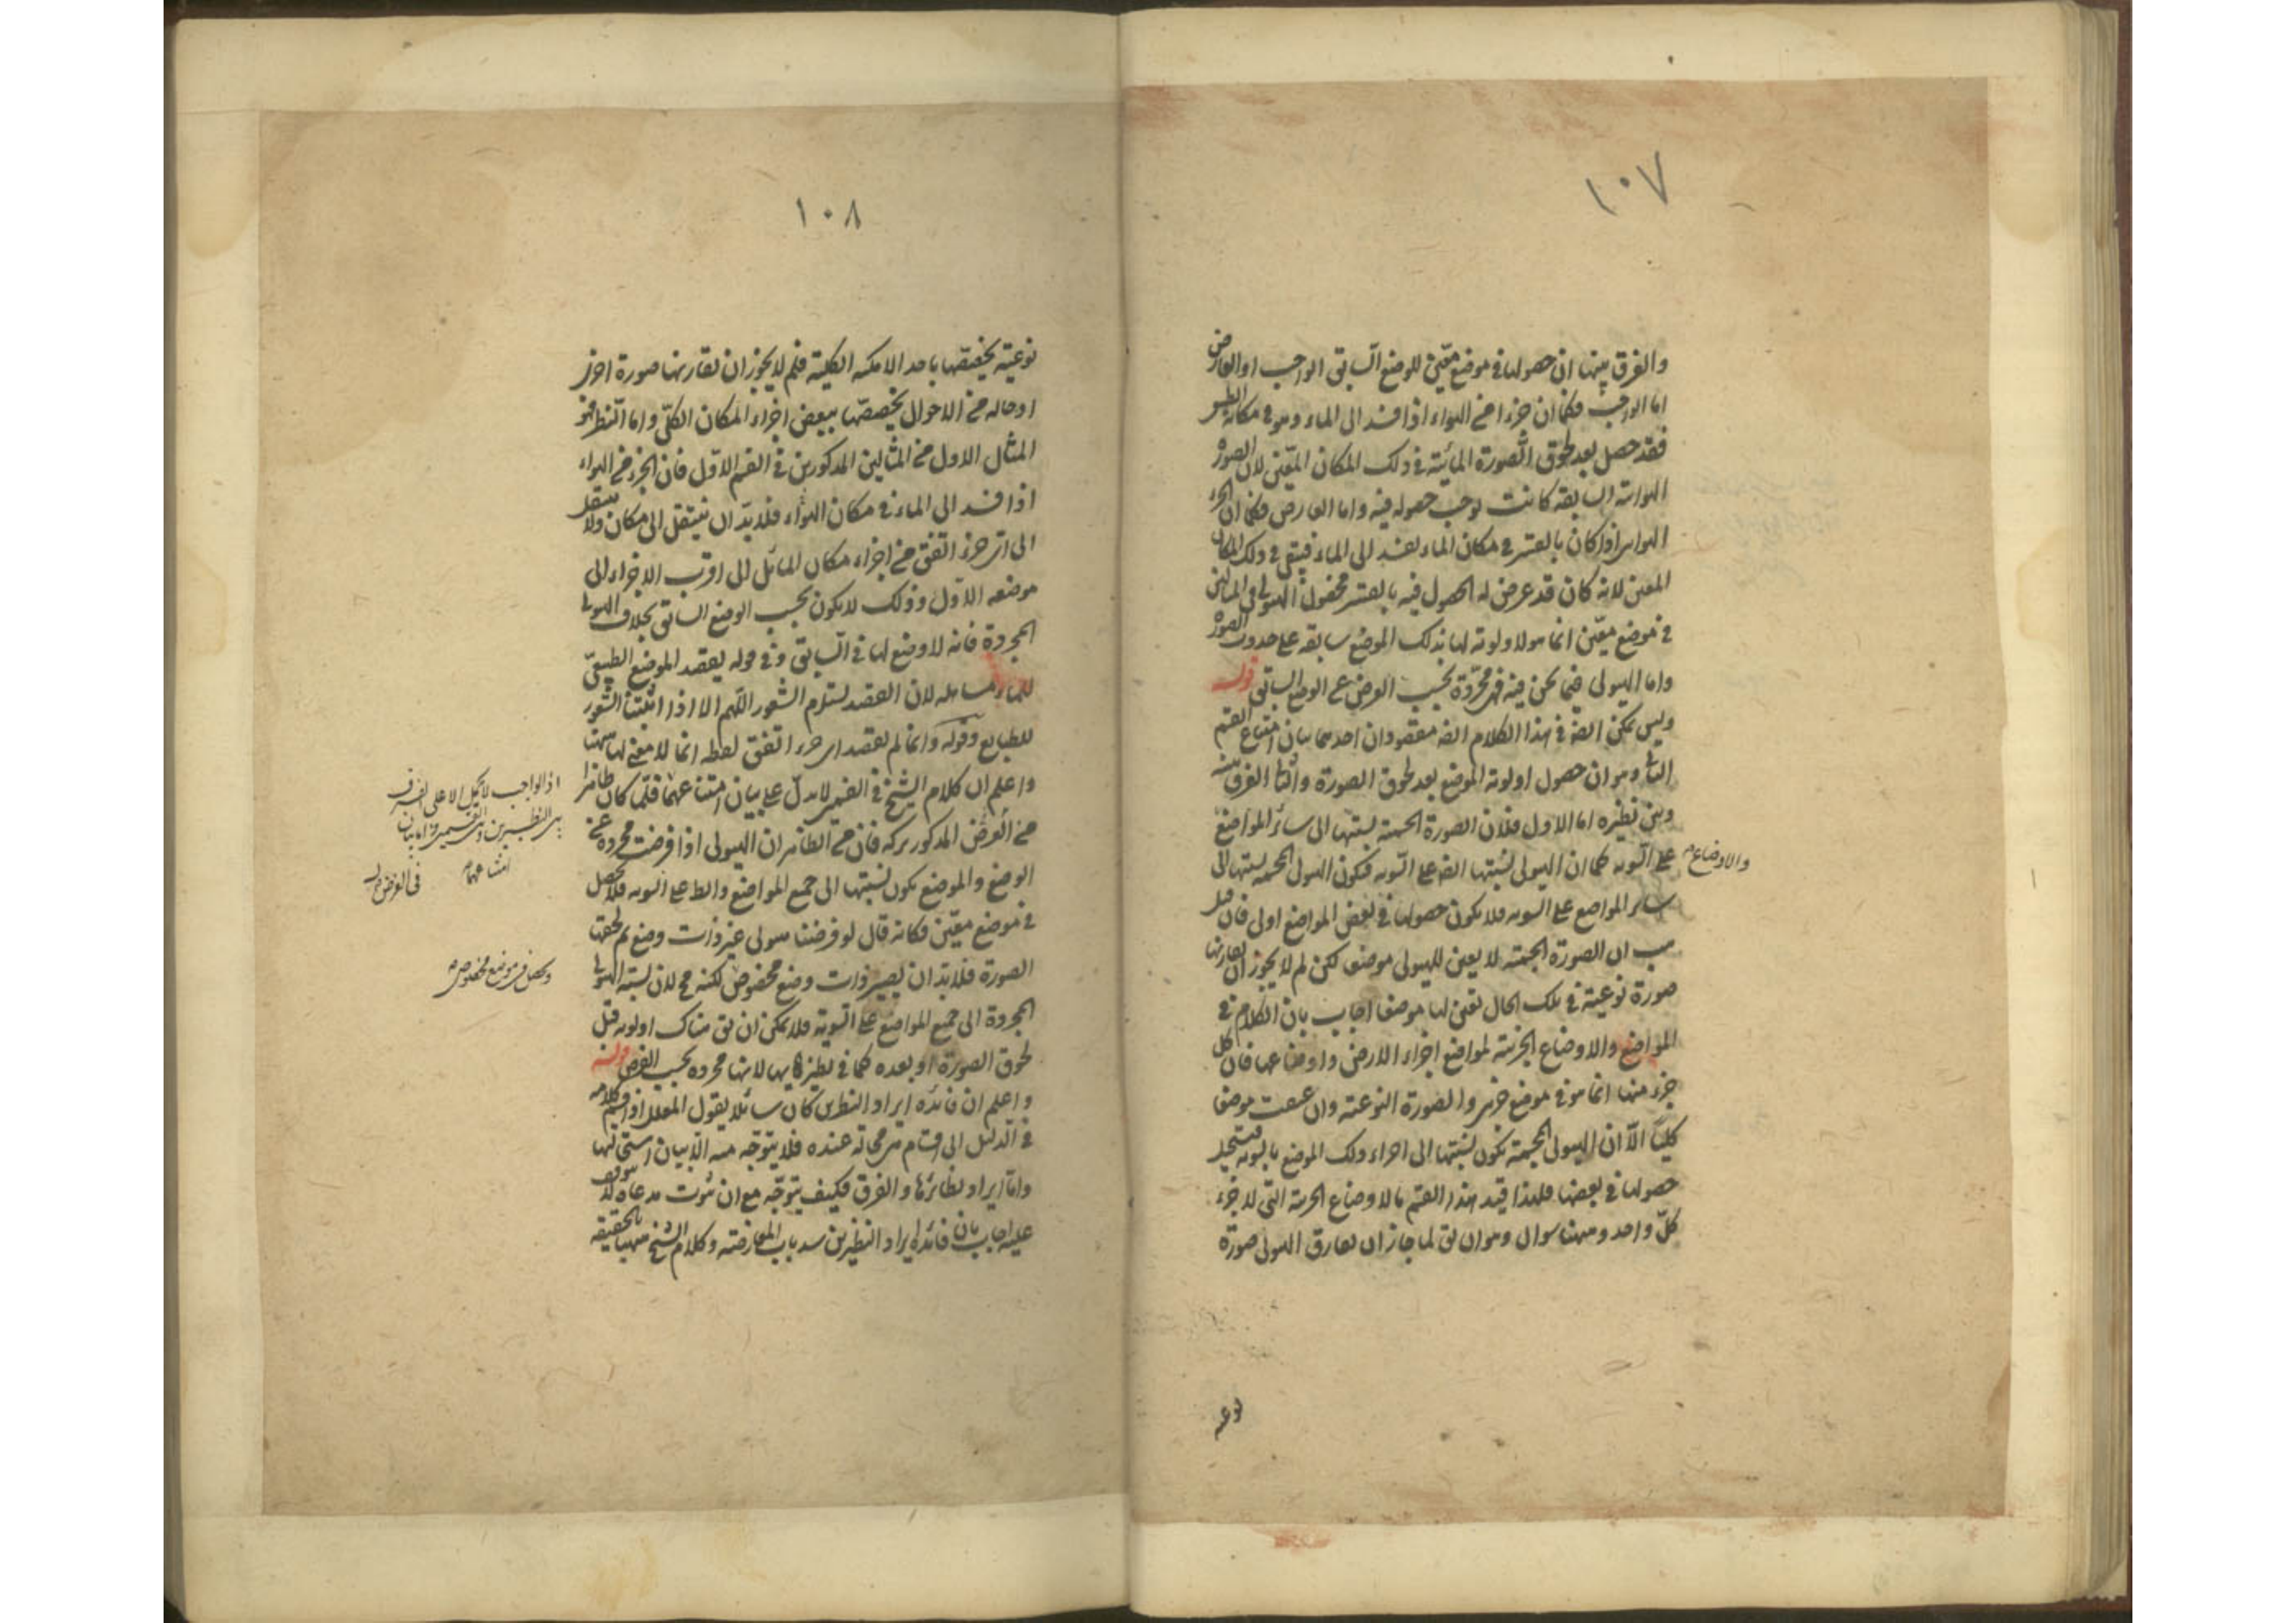 ١٠٧
والفرق بينها ان حصولها في موضع معين للوضع السابق الواجب او العارض
اما الواجب فكما ان جزءا من الهواء اذا فسد الى الماء وهو في مكانه
فقد حصل بعد لحوق الصورة المائية في ذلك المكان المعين لان الصورة
الهوائية السابقة كانت توجب حصوله فيه واما العارض فكما ان الجزء
الهوائي اذا كان بالقسر في مكان الماء يفسد الى الماء فيبقى في ذلك المكان
المعين لانه كان قد عرض له الحصول فيه بالقسر فحصول الهيولى في المثالين
في موضع معين انما هو لاولوية لها بذلك الموضع سابقة على حدوث الصورة
واما الهيولى فيما نحن فيه فهي مجردة بحسب الفرض عن الوضع السابق قوله
وليس يمكن ايضا في هذا الكلام ايضا مقصودان احدهما بيان امتناع القسم
الثاني وهو ان حصول اولوية الموضع بعد لحوق الصورة والثاني الفرق بينه
وبين نظيره اما الاول فلان الصورة الجسمية نسبتها الى سائر المواضع
والاوضاع
على السوية كما ان الهيولى نسبتها ايضا على السوية فيكون الهيولى المجسمة نسبتها الى
سائر المواضع على السوية فلا يكون حصولها في بعض المواضع اولى فان قيل
هب ان الصورة الجسمية لا يعين للهيولى موضعا لكن لم لا يجوز ان يقارنها
صورة نوعية في تلك الحال تعين لها موضعا اجاب بان الكلام في
المواضع والاوضاع الجزئية لمواضع اجزاء الارض واوضاعها فان كل
جزء منها انما هو في موضع جزئي والصورة النوعية وان عينت موضعا
كليا الا ان الهيولى المجسمة تكون نسبتها الى اجزاء ذلك الموضع بالسوية فيستحيل
حصولها في بعضها فلهذا قيد هذا القسم بالاوضاع الجزئية التي لاجزاء
كل واحد وههنا سوال وهو ان يق لما جاز ان يقارن الهيولى صورة
نوعية
١٠٨
نوعية يخصصها باحد الامكنة الكلية فلم لا يجوز ان تقارنها صورة اخرى
او حالة من الاحوال يخصصها ببعض اجزاء المكان الكلي واما النظير فهو
المثال الاول من المثالين المذكورين في القسم الاول فان الجزء من الهواء
اذا فسد الى الماء في مكان الهواء فلا بد ان ينتقل الى مكان ولا ينتقل
الى اي جزء اتفق من اجزاء مكان الماء بل الى اقرب الاجزاء الى
موضعه الاول وذلك لا يكون بحسب الوضع السابق بخلاف الهيولى
المجردة فانه لا وضع لها في السابق وفي قوله يقصد الموضع الطبيعي
للماء مساهلة لان القصد يستلزم الشعور اللهم الا اذا اثبتنا الشعور
للطبايع وقوله وانما لم يقصد اي جزء اتفق لفظه انما لا معنى لها ههنا
واعلم ان كلام الشيخ في القسمين لا يدل على بيان امتناعهما فلما كان ظاهرا
من الفرض المذكور تركه فان من الظاهر ان الهيولى اذا فرضت مجردة عن
الوضع والموضع يكون نسبتها الى جميع المواضع والاوضاع على السوية فلا يحصل
في موضع معين فكانه قال لو فرضنا هيولى غير ذات وضع ثم لحقها
الصورة فلا بد ان يصير ذات وضع مخصوص لكنه مح لان نسبة الهيولى
المجردة الى جميع المواضع على السوية فلا يمكن ان يق هناك اولوية قبل
لحوق الصورة او بعده كما في نظيرهما لانها مجردة بحسب الفرض قوله
واعلم ان فائدة ايراد النظيرين كان سائلا يقول المعلل اذا قسم كلامه
في الدليل الى اقسام هي محالة عنده فلا يتوجه منه الا بيان استحالتها
واما ايراد نظائرها والفرق فكيف يتوجه مع ان ثبوت مدعاه لا يتوقف
عليه اجاب بان فائدة ايراد النظيرين سد باب المعارضة وكلام الشيخ ههنا بالحقيقة
اذ الواجب لا يحمل الا على الفرق
بين النظيرين والقسمين واما بيان
امتناعهما
ويحصل في موضع مخصوص